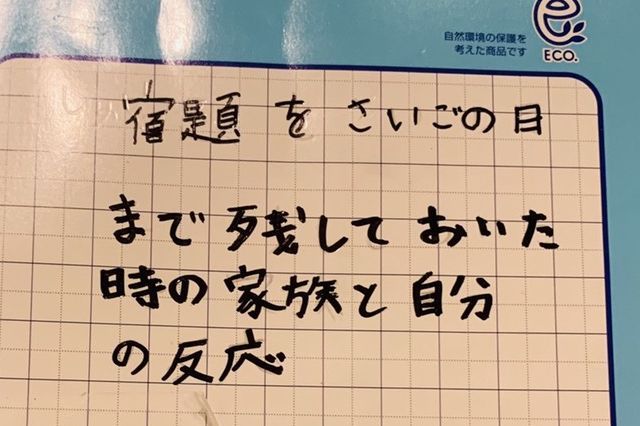 自然環境の保護を
考えた商品です
e
ECO.
宿題をさいごの日
まで残しておいた
時の家族と自分
の反応